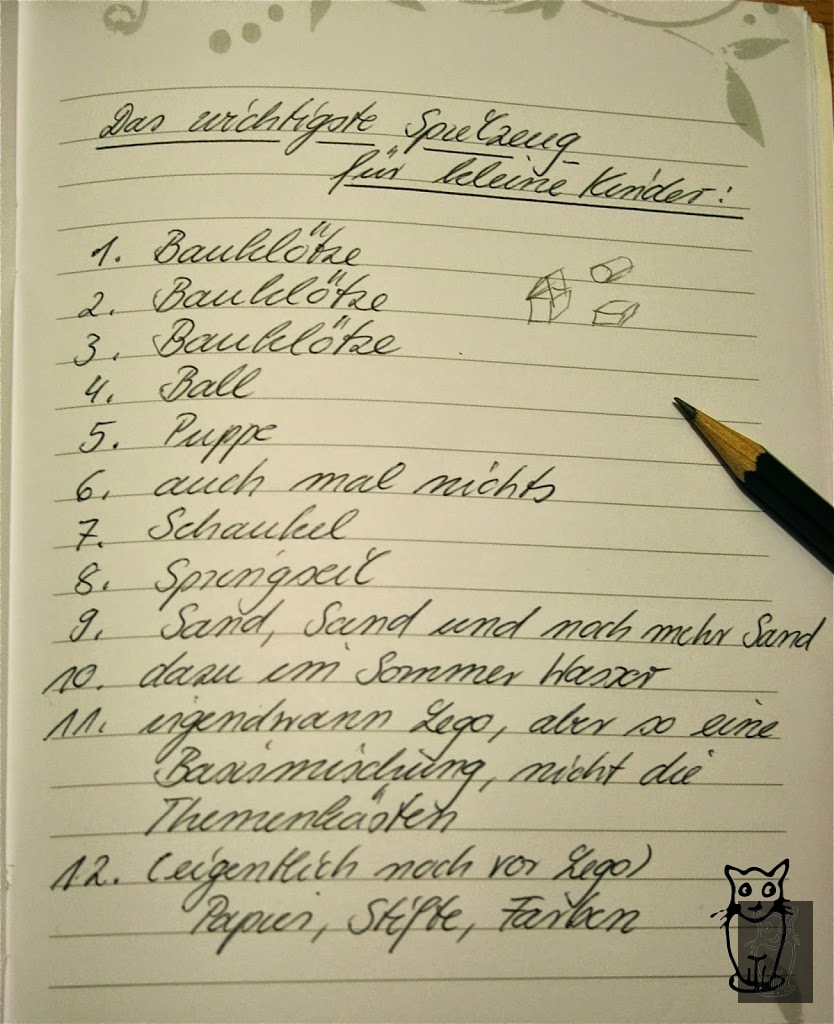 Das wichtigste Spielzeug
für kleine Kinder:
1. Bauklötze
2. Bauklötze
3. Bauklötze
4. Ball
5. Puppe
6. auch mal nichts
7. Schaukel
8. Springseil
9. Sand, Sand und noch mehr Sand
10. dazu im Sommer Wasser
11. irgendwann Lego, aber so eine
Basismischung, nicht die
Themenkästen
12. (eigentlich noch vor Lego)
Papier, Stifte, Farben